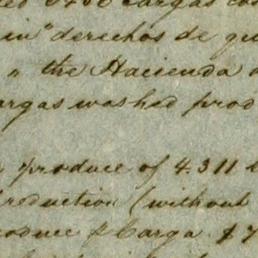 cargas
in" derechos de
" the Hacienda
argas washed prod
produce of 4.311
production (without
oduce p Carga $7